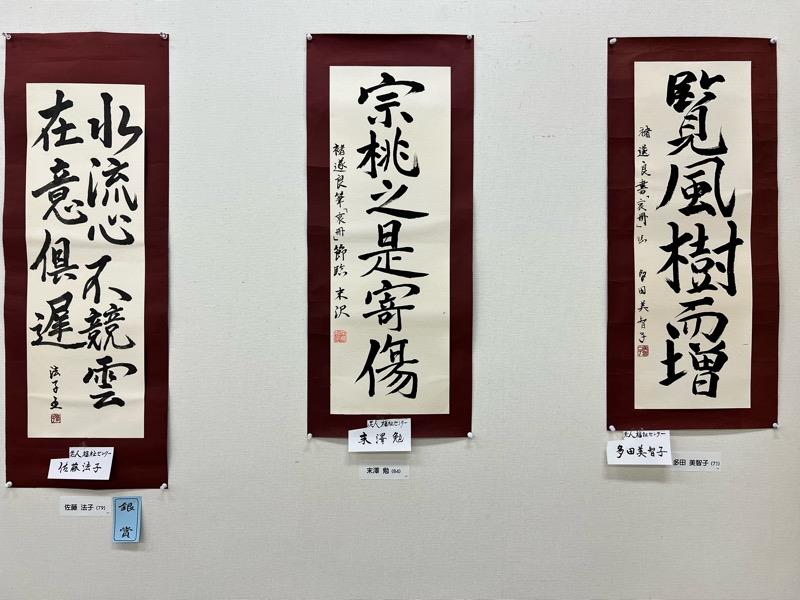 水流心不競雲
在意俱遲
法子
老人福祉センター
佐藤法子
佐藤 法子 (79)
銀賞
宗桃之是寄傷
褚遂良筆「哀册」節臨 末沢
老人福祉センター
末澤 勉
末澤 勉 (84)
覧風樹而增
褚遂良書「哀册」臨 多田美智子
老人福祉センター
多田美智子
多田 美智子 (71)